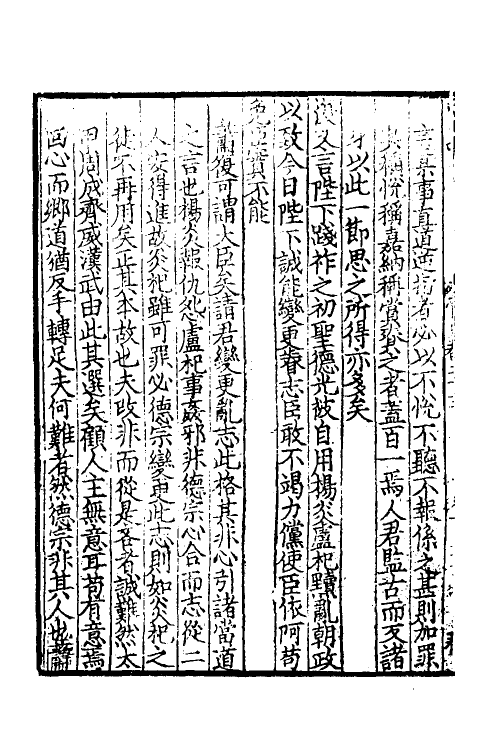 言某事直道逆指者必以不悅不聽不報係之甚則加罪
其稱悅稱嘉納稱賞矣之者蓋百一焉人君監古而反諸
身以此一節思之所得亦多矣
又言陛下踐祚之初聖德光被自用楊炎盧杞黷亂朝政
以致今日陛下誠能變更睿志臣敢不竭力儻使臣依阿苟
免臣實不能
復可謂大臣矣請君變更亂志此格其非心引諸當道
之言也楊炎報仇怨盧杞事姦邪非德宗心合而志從二
人安得進故炎杞雖可罪必德宗變更此志則如炎杞之
徒不再用矣正其本故也夫改非而從是吝者誠難然太
甲周成齊威漢武由此其選矣顧人主無意耳苟有意焉
回心而鄉道猶反手轉足夫何難者然德宗非其人也